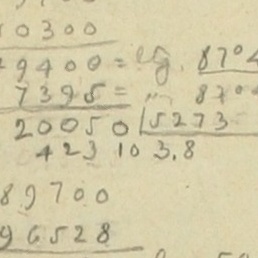 0300
9400 = lg. 8704
7395 = " 870
20050 5273
423 10 3,8
89700
96528